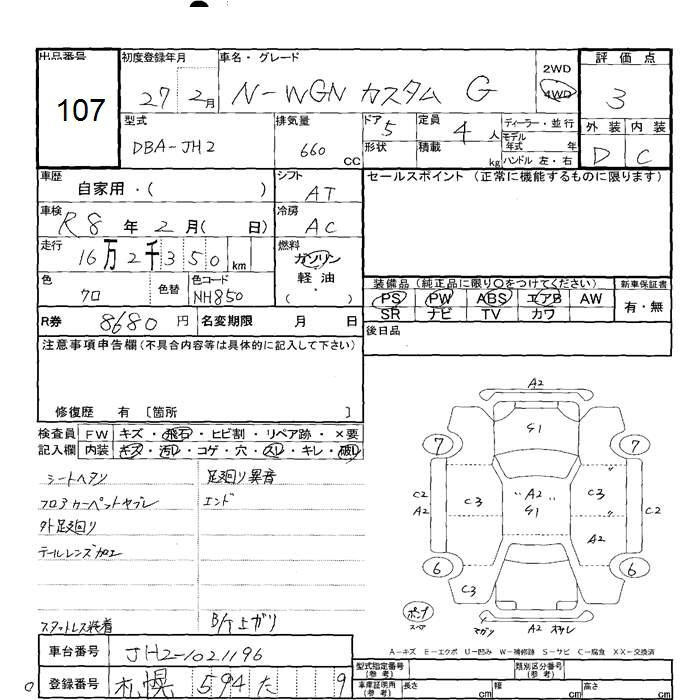 出品番号 107
初度登録年月 27 2月
車名・グレード N-WGN カスタム G
2WD 4WD
評価点 3
外装 D 内装 C
型式 DBA-JH2
排気量 660 CC
ドア 5 形状
定員 4 人 積載 kg
ディーラー・並行
モデル年式 年
ハンドル 左・右
車歴 自家用・( )
シフト AT
セールスポイント (正常に機能するものに限ります)
車検 R8 年 2 月( 日)
冷房 AC
走行 16万2千350 km
燃料 ガソリン 軽油 ・( )
色 クロ 色替 色コード NH850
装備品 (純正品に限り○をつけてください) 新車保証書
PS PW ABS エアB AW 有・無
SR ナビ TV カワ
R券 8680 円 名変期限 月 日
後日品
注意事項申告欄 (不具合内容等は具体的に記入して下さい)
修復歴 有 [箇所 ]
検査員 FW キズ・飛石・ヒビ割・リペア跡・×要
記入欄 内装 キズ・汚レ・コゲ・穴・スレ・キレ・破レ
シートヘタリ 足廻り異音
フロアカーペットヤブレ エンド
外足廻り
テールレンズ加工
スタットレス装着 B/T上ガリ
A2
G1
7 7
C2 A2 C3 A2 G1 C3 C2
A2
6 6
C3
ポンプ スペア
マガリ A2 オサレ
A-キズ E-エクボ U-凹み W-補修跡 S-サビ C-腐食 XX-交換済
車台番号 JH2-1021196
登録番号 札幌 594 た 9
型式指定番号 (参考) 類別区分番号 (参考)
車庫証明用 (参考) 長さ cm 幅 cm 高さ cm